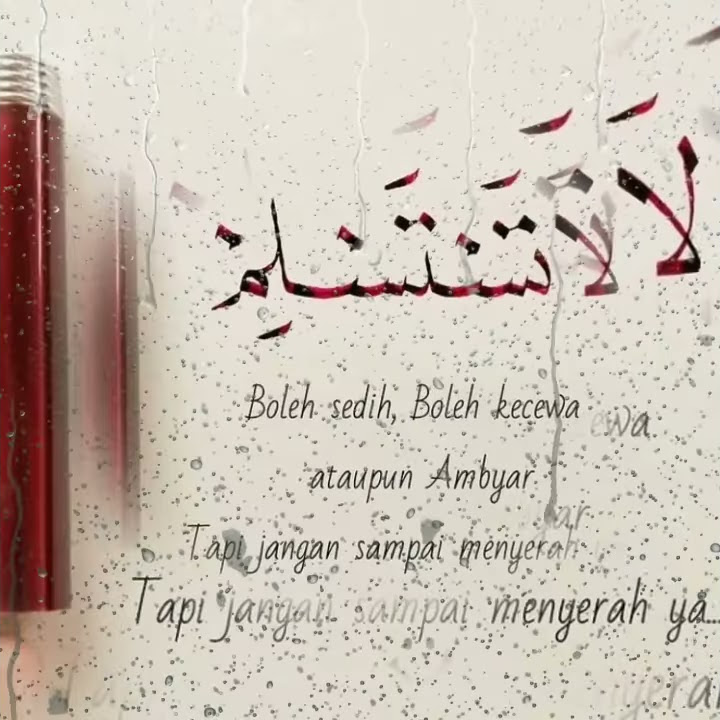 لَا تَسْتَسْلِمْ
Boleh sedih, Boleh kecewa
ataupun Ambyar
Tapi jangan sampai menyerah
Tapi jangan sampai menyerah ya...